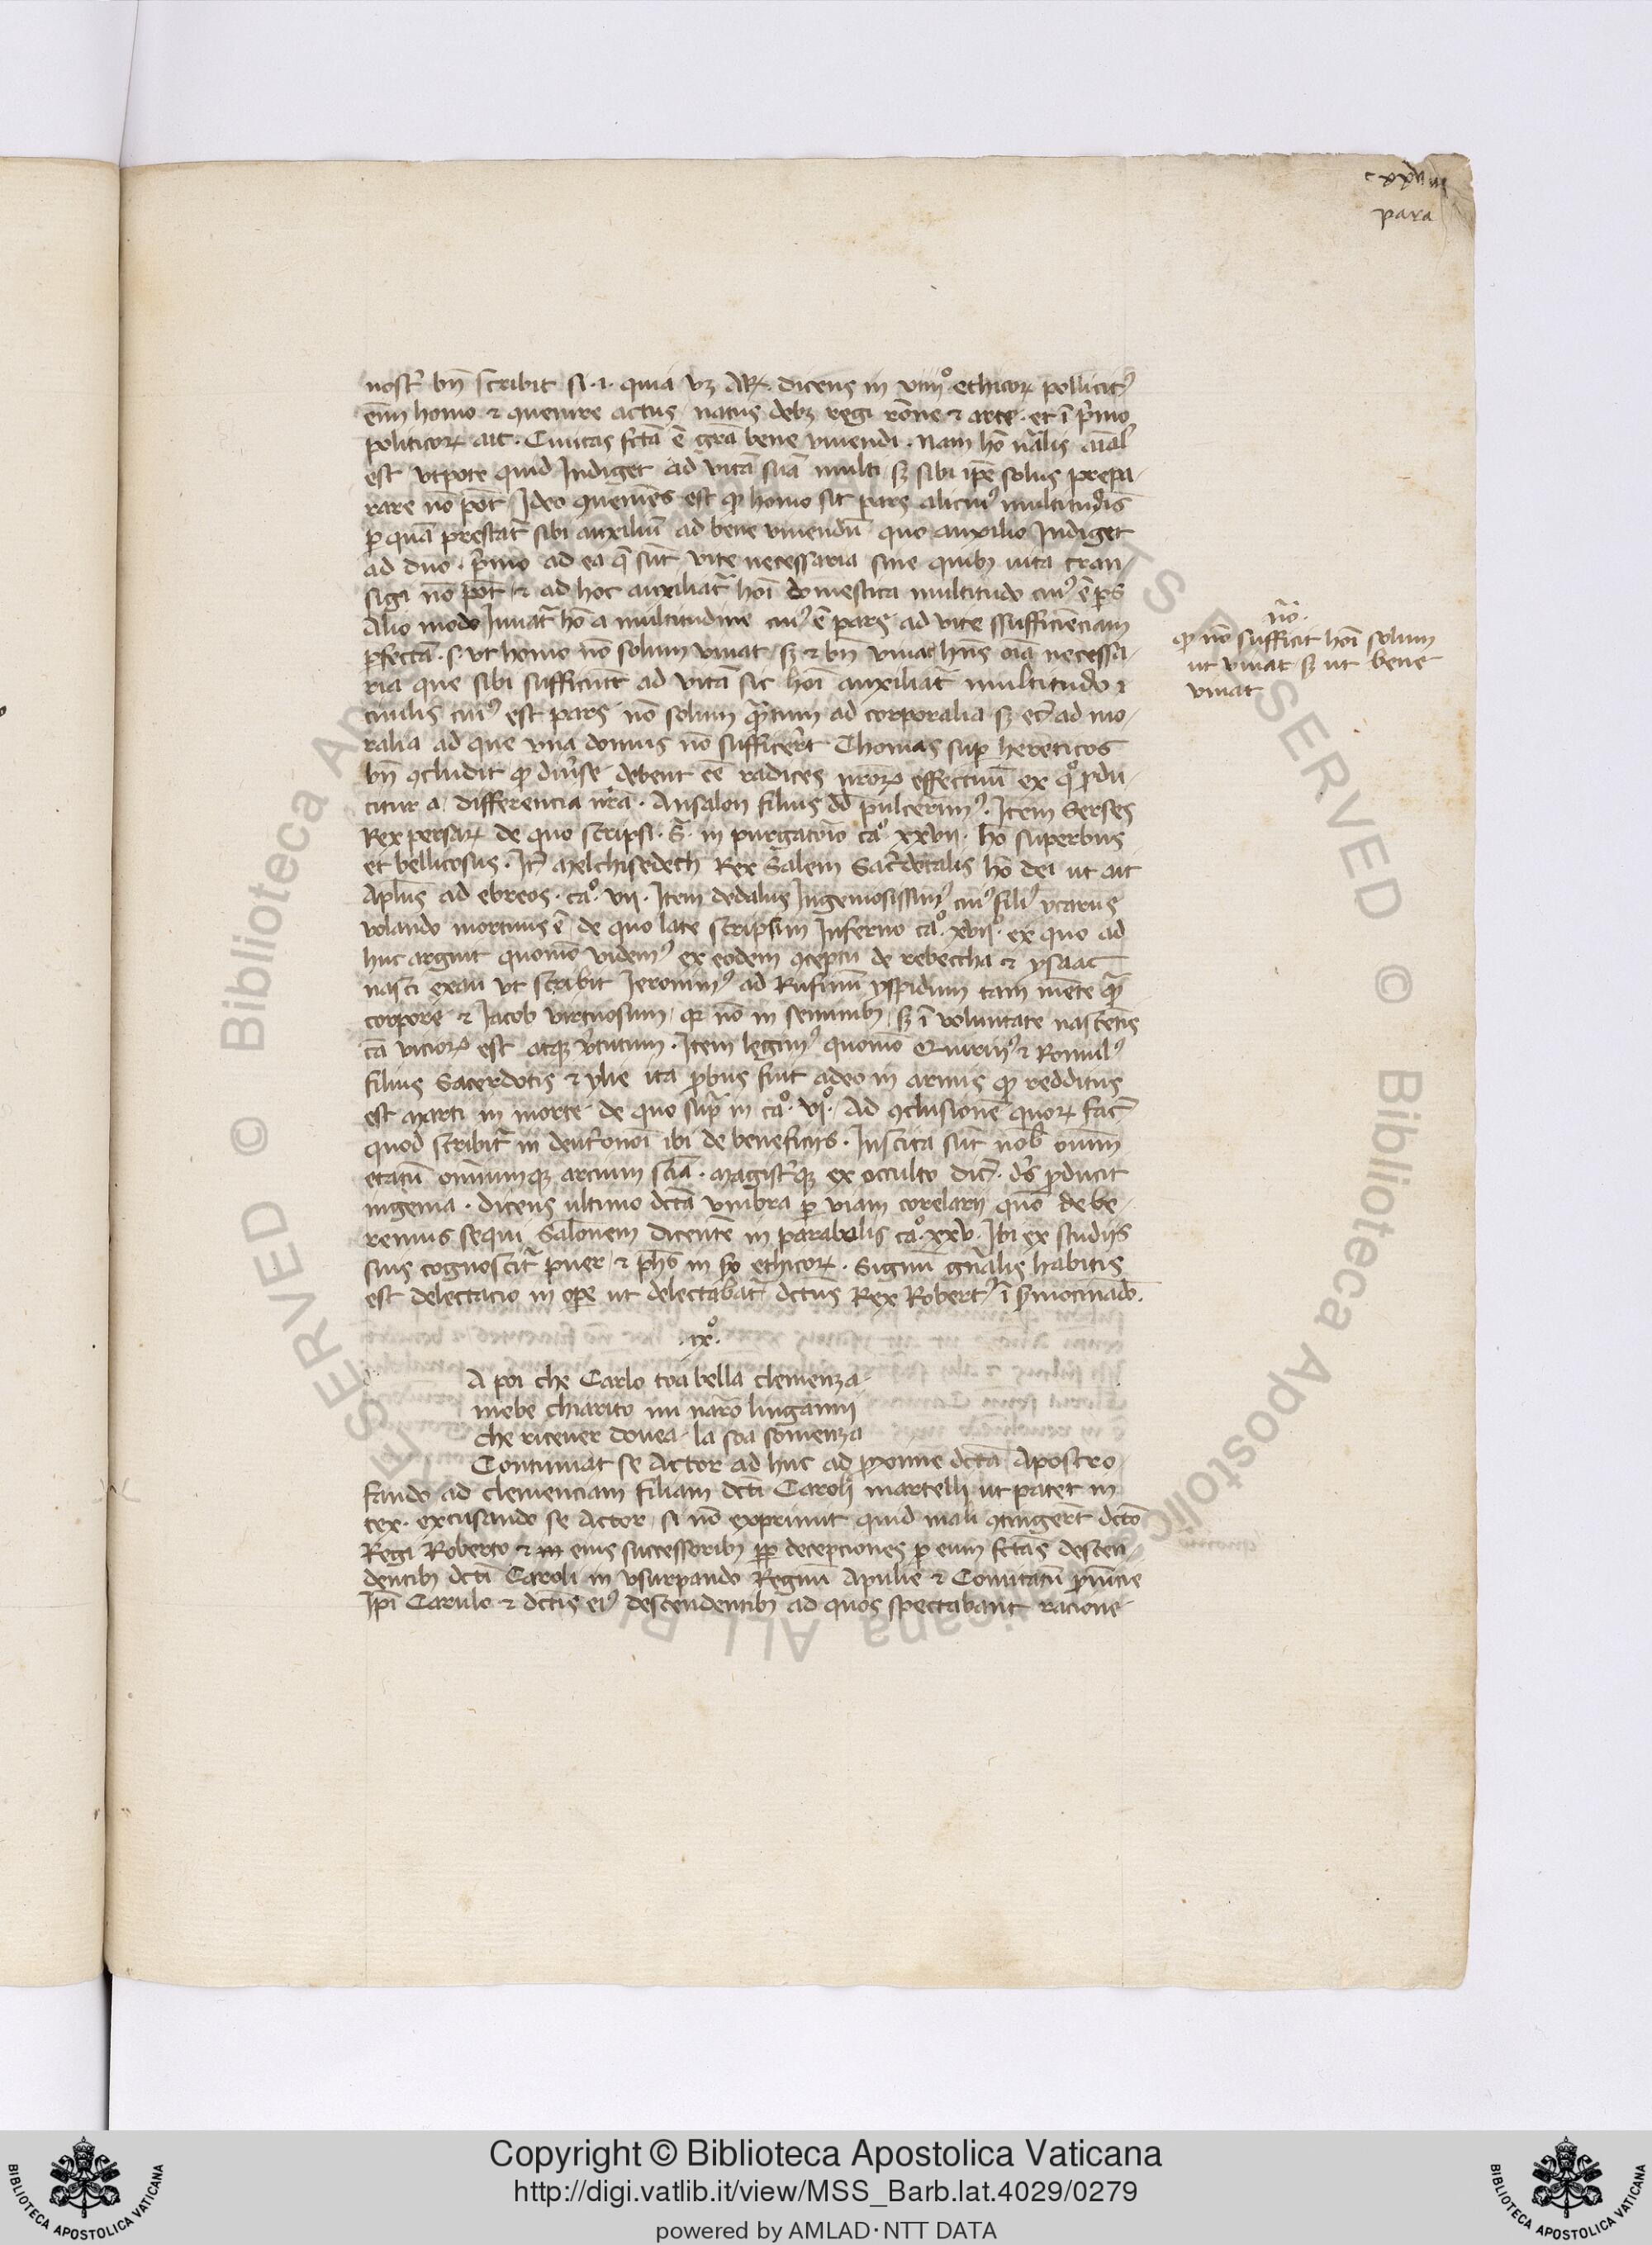 cxxviii
para
nostr̄ bn̄ scribit si .i. quia vꝫ Aꝝ. dicens in viiiº ethicoꝝ pollicitꝰ
enim homo & ꝯuenire actus natus debꝫ regi rōne & arte. et ī pͥmo
politicoꝝ ait. Ciuitas fctā ē grā bene viuendi. Nam hō nālis aīal
est vtpote quid Indiget ad vitā suā multi sꝫ sibi ipē solus prepa-
rare nō pōt Ideo ꝯueniēs est ꝙ homo sit pars alicuiꝰ multitudīs
ꝑ quā prestat̄ sibi auxiliū ad bene viuendū quo auxilio Indiget
ad duo. pͥmo ad ea q̄ sūt vite necessaria sine quibꝫ uita tran-
sigi nō pōt & ad hoc auxiliat̄ hoī domestica multitudo cuiꝰ ē ps̄
Alio modo Iuuat̄ hō a multitudine cuiꝰ ē pars ad vite ssufficienciam
ꝑfectā .s. vt homo nō solum viuat sꝫ & bn̄ viuat hn̄s oīa necessa-
ria que sibi sufficiūt ad vitā sic hoī auxiliat̄ multitudo
ciuilis cuiꝰ est pars nō solum q̄tum ad corporalia sꝫ et̄ ad mo-
ralia ad que vna domus nō sufficeret Thomas suꝑ hereticos
bn̄ ꝯcludit ꝙ diūse debent eē radices nr̄oꝝ effectuū ex qº ꝓdu-
citur a differencia nr̄a. Ansalon filius dd̄ pulcerimꝰ. Item Serses
Rex persaꝝ de quo scripsi .S. in purgatoio caº xxvii. hō superbus
et bellicosus. It̄ Melchisedech Rex Salem Sac̄dotalis hō dei ut ait
Apl̄us ad ebreos. caº. vii. Item dedalus Ingeniosissimꝰ cuiꝰ filiꝰ ycarus
volando mortuus ē de quo late scripsi in Inferno caº. xviiº. ex quo ad
huc arguit quomō videmꝰ ex eodem ꝯceptu de rebeccha & ysaac
nasci exau vt scribit Ieronimꝰ ad Rufinū yspidum tam mente q̄
corpore & Iacob virtuosum. qꝛ nō in seminibꝫ sꝫ ī voluntate nascētis
cā vicioꝝ est atqꝫ v̄tutum. Item legimꝰ quomō Quirinꝰ & Romulꝰ
filius Sacerdotis & ylie ita ꝓbus fuit adeo in armis ꝙ redditus
est Marti in morte de quo sup̄ in caº. viº. Ad ꝯclusionē quoꝝ fac̄
quod scribit̄ in deut̄onoī ibi de beneficiis. Inscita sūt nob̄ oīum
etatū omniumqꝫ arcium scīa. Magist̄qꝫ ex occulto dic̄. ds̄ ꝓducit
ingenia. dicens ultimo dctā vmbra ꝑ viam corelarij quō debe-
remus sequi Salonem dicentē in parabolis caº. xxv. Ibi ex studijs
suis cognoscit̄ puer & phō in ethicoꝝ. Signū gn̄alis habitis
est delectacio in oꝑe ut delectabat̄ dctus Rex Robertꝰ ī sermocinādo.
.ixº.
A poi che Carlo toa bella clemenza
mebe chiarito mi narō lingannij
che riceuer douea la soa somenza
Continuat se Actor ad huc ad ꝓxime dctā Apostro-
fando ad clemenciam filiam dcti Caroli martelli ut patet in
tex. excusando se Actor si nō exprimit quid mali ꝯtingerēt dctō
Regi Roberto & in eius successoribꝫ ꝓꝑ decepciones ꝑ eum fctās descen-
dentibꝫ dcti Caroli in vsurpando Regnū Apulie & Comitatū ꝓuīcie
Ipī Carulo & dctīs eiꝰ descendentibꝫ ad quos spectabant racione
nō.
ꝙ nō sufficit hoī solum
ut viuat sꝫ ut bene
viuat
Copyright © Biblioteca Apostolica Vaticana
http://digi.vatlib.it/view/MSS_Barb.lat.4029/0279
powered by AMLAD·NTT DATA